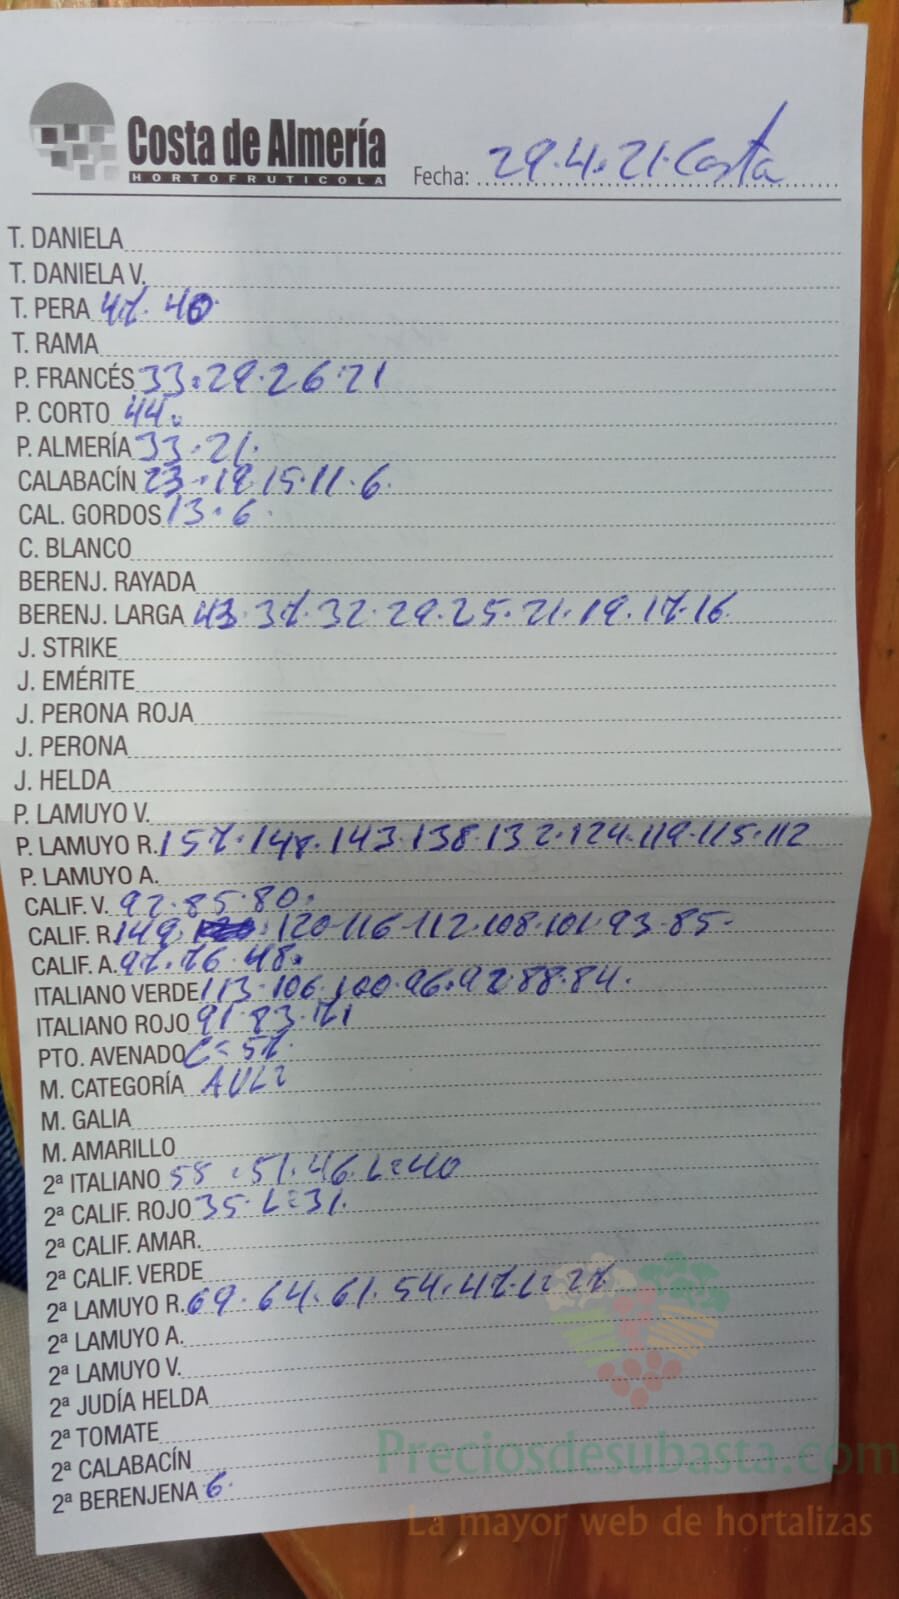 Costa de Almería
HORTOFRUTICOLA
Fecha: 29.4.21 Costa
T. DANIELA
T. DANIELA V.
T. PERA 47. 40
T. RAMA
P. FRANCÉS 33.29.26.21
P. CORTO 44.
P. ALMERÍA 33.21.
CALABACÍN 23.19.15.11.6.
CAL. GORDOS 13.6.
C. BLANCO
BERENJ. RAYADA
BERENJ. LARGA 43.37.32.29.25.21.19.17.16.
J. STRIKE
J. EMÉRITE
J. PERONA ROJA
J. PERONA
J. HELDA
P. LAMUYO V.
P. LAMUYO R. 157.147.143.138.132.124.119.115.112
P. LAMUYO A.
CALIF. V. 92.85.80.
CALIF. R. 149. 120.116.112.108.101.93.85.
CALIF. A. 97.76.48.
ITALIANO VERDE 113.106.100.96.92.88.84.
ITALIANO ROJO 91.83.71
PTO. AVENADO C=57.
M. CATEGORÍA
M. GALIA
M. AMARILLO
2ª ITALIANO 58.51.46.L=40
2ª CALIF. ROJO 35.L=31.
2ª CALIF. AMAR.
2ª CALIF. VERDE
2ª LAMUYO R. 69.64.61.54.47.L=27
2ª LAMUYO A.
2ª LAMUYO V.
2ª JUDÍA HELDA
2ª TOMATE
2ª CALABACÍN
2ª BERENJENA 6.
Preciosdesubasta.com
La mayor web de hortalizas